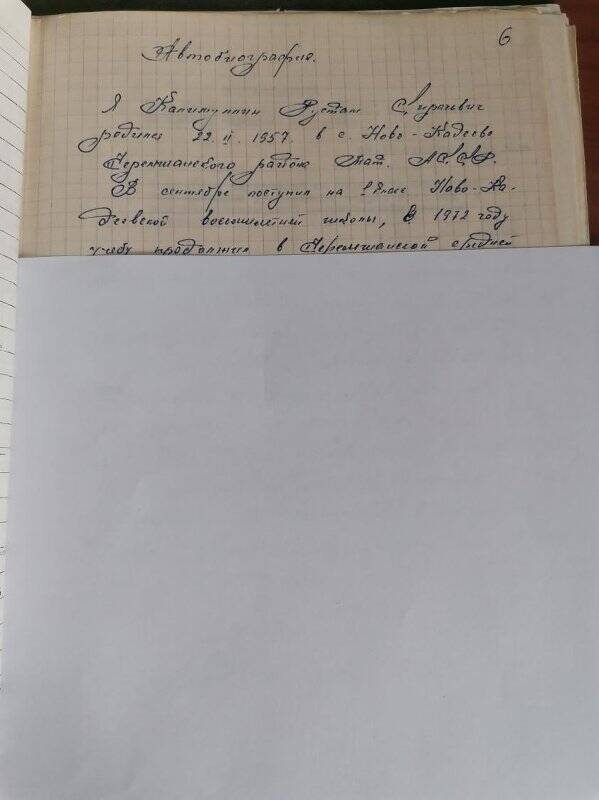 6
Автобиография.
Я Калимуллин Рустам Сиразевич
родился 22. II. 1957. в с. Ново-Кадеево
Черемшанского района Тат. АССР.
В сентябре поступил на 1 класс Ново-Ка-
деевской восьмилетней школы, В 1972 году
учебу продолжил в Черемшанской средней